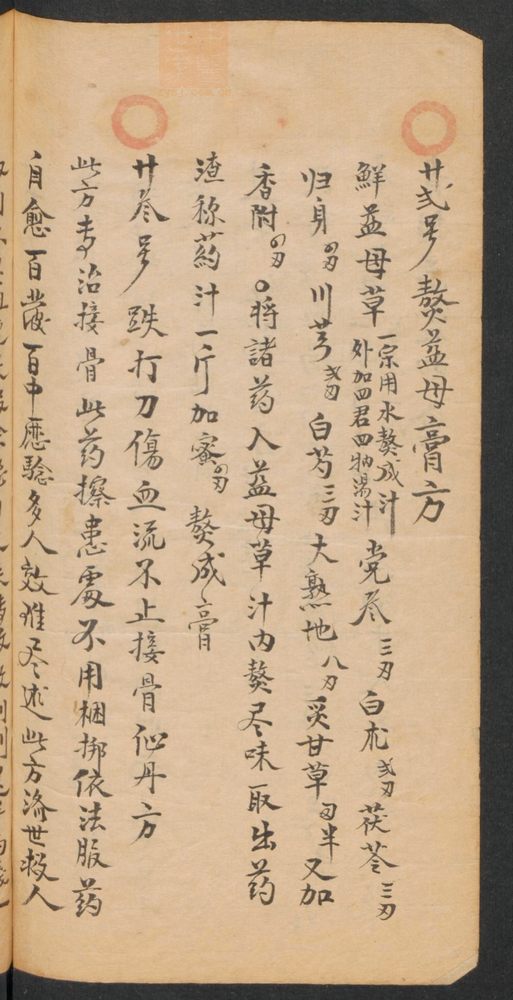 廿弍号 熬益母膏方
鮮益母草 一宗用水熬成汁 外加四君四物湯汁 党参 三刄 白朮 弍刄 茯苓 三刄
归身 四刄 川芎 弍刄 白芍 三刄 大熟地 八刄 炙甘草 刄半 又加
香附 四刄 〇將諸药入益母草汁内熬尽味取出药
渣称药汁一斤加蜜 四刄 熬成膏
廿叁号 跌打刀傷血流不止接骨仙丹方
此方專治接骨此药擦患處不用梱挷依法服药
自愈百發百中應驗多人效难尽述此方濟世救人